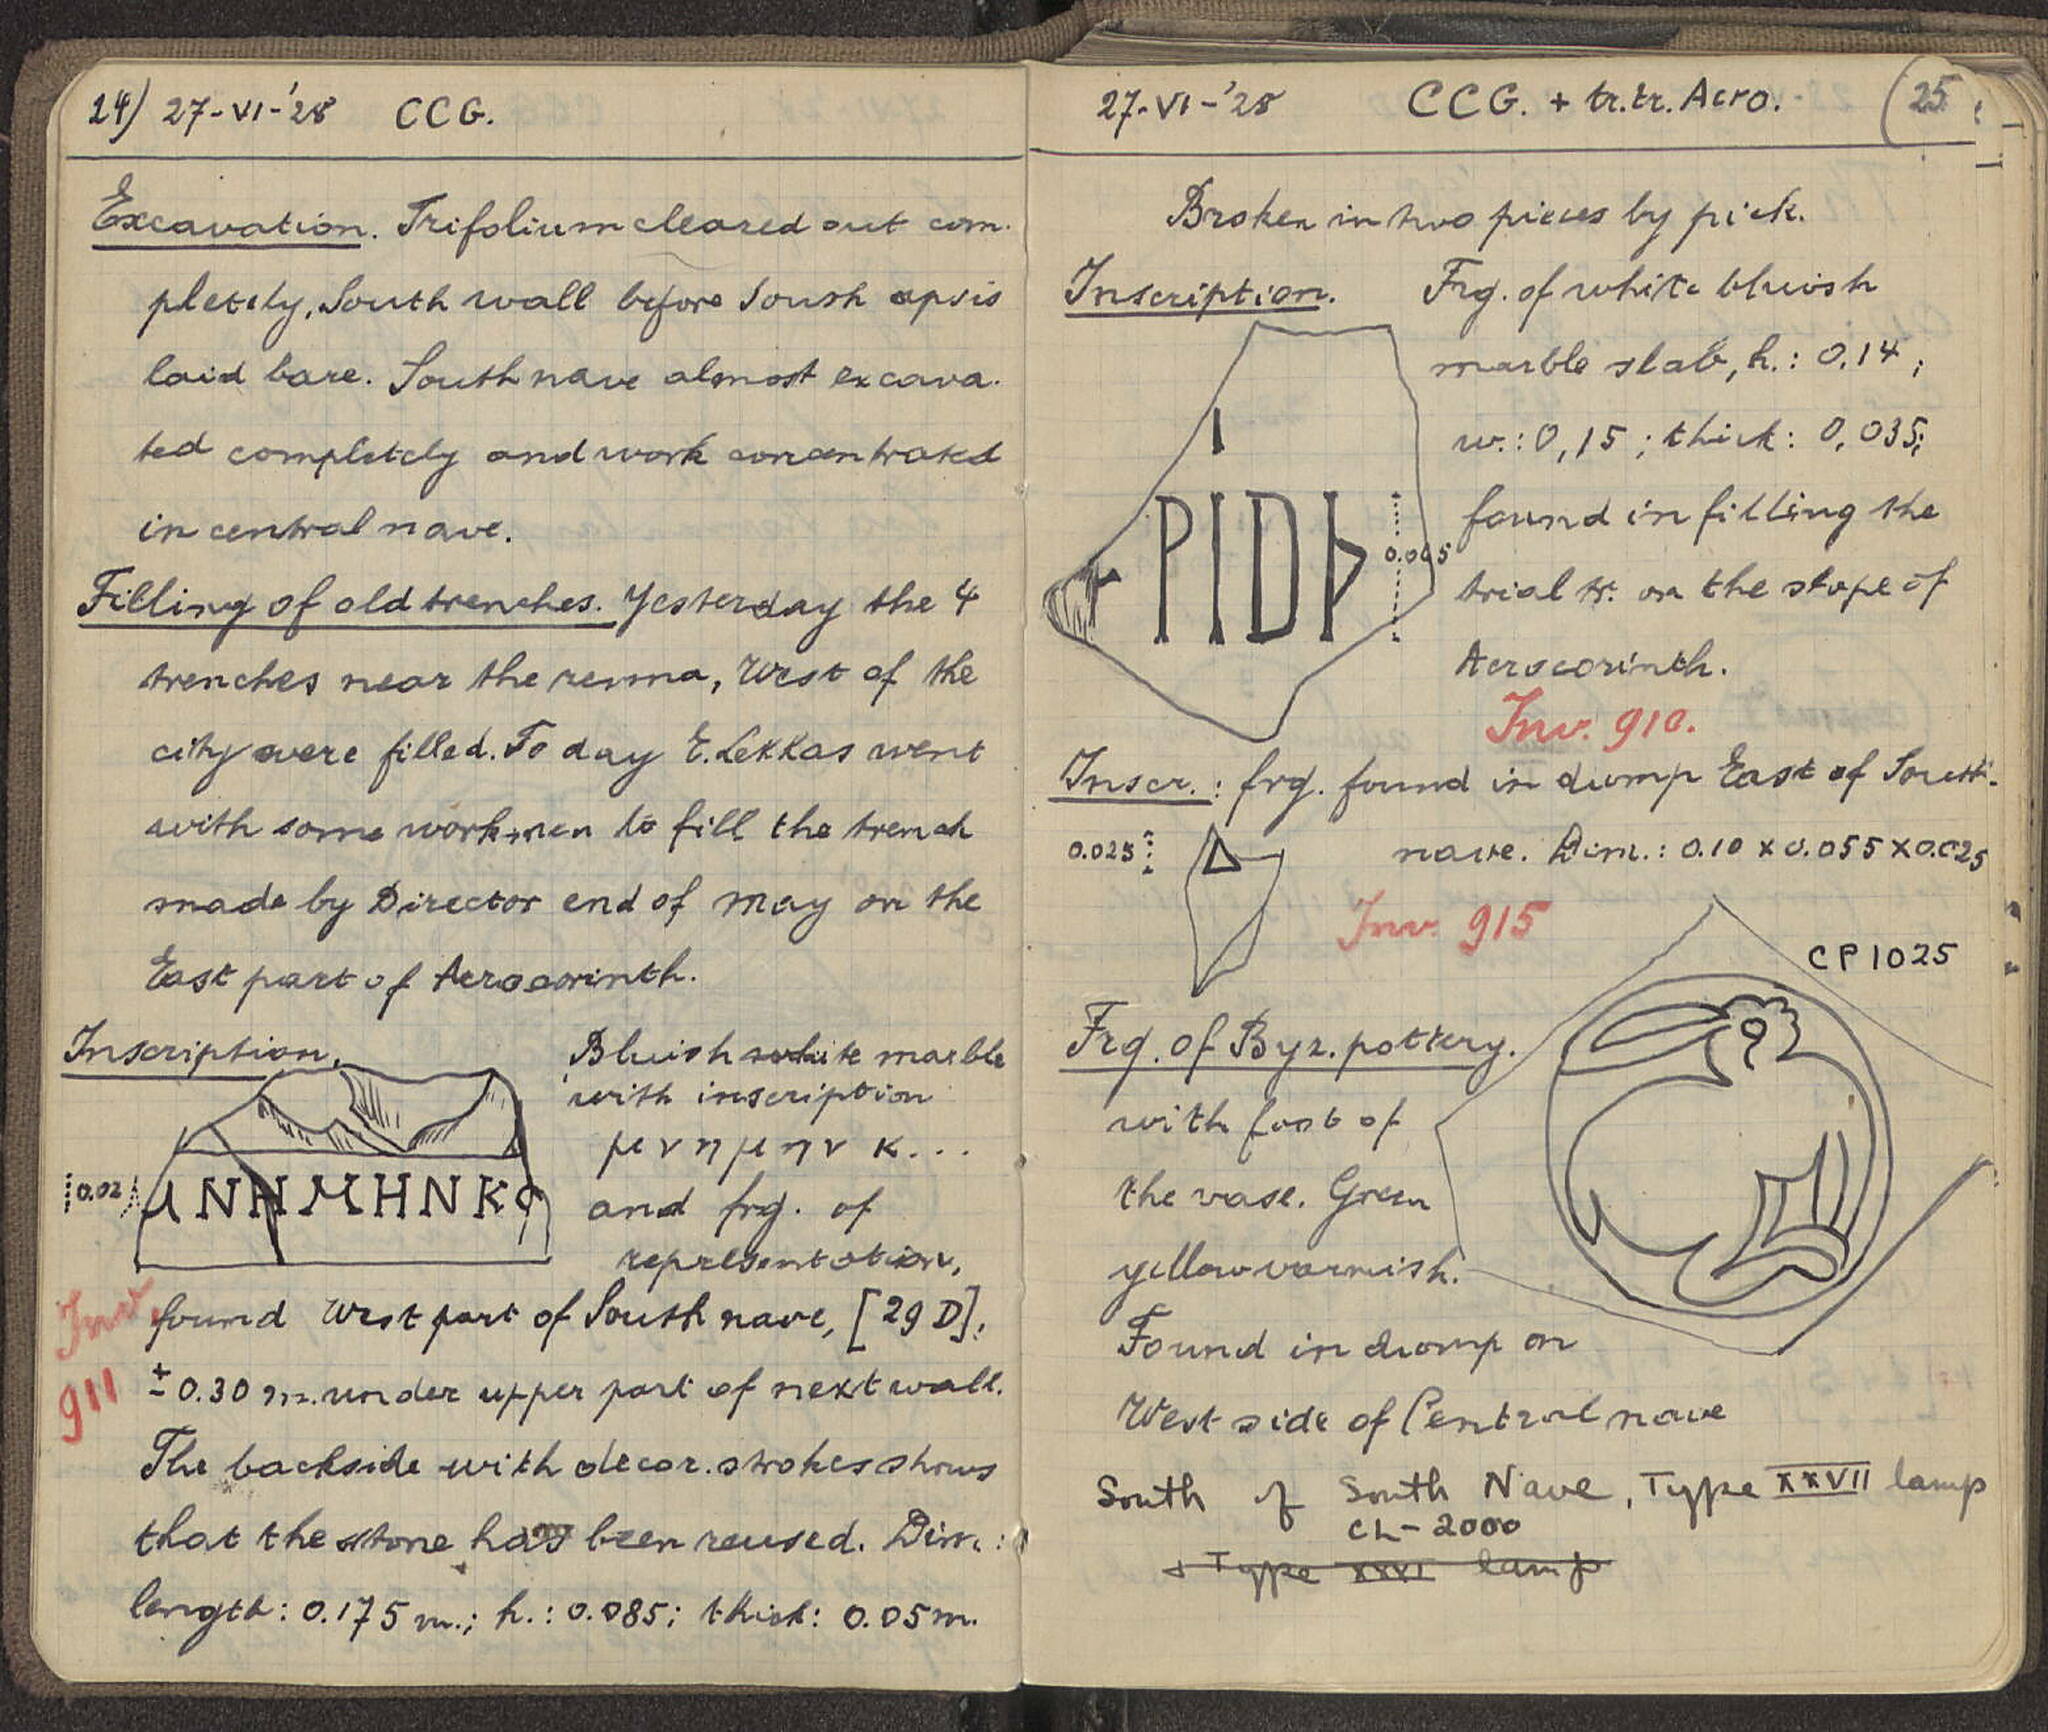 24) 27-VI-'28 CCG.
Excavation. Trifolium cleared out com-
pletely, South wall before South apsis
laid bare. South nave almost excava-
ted completely and work concentrated
in central nave.
Filling of old trenches. Yesterday the 4
trenches near the revma, West of the
city were filled. To day E. Lekkas went
with some workmen to fill the trench
made by Director end of May on the
East part of Acrocorinth.
Inscription.
Bluish white marble
with inscription
μνημην κ...
and frg. of
representation,
0.02
ΜΝΗΜΗΝΚ
Inv.
911
found West part of South nave, [29 D],
± 0.30 m. under upper part of next wall.
The backside with decor. strokes shows
that the stone has been reused. Dim.:
length: 0.175 m.; h.: 0.085; thick: 0.05 m.
27-VI-'28 CCG. + tr. tr. Acro. (25
Broken in two pieces by pick.
Inscription. Frg. of white bluish
marble slab, h.: 0.14;
w.: 0,15; thick: 0,035;
found in filling the
trial tr. on the slope of
Acrocorinth.
PIDI
0.065
Inv. 910.
Inscr.: frg. found in dump East of South-
nave. Dim.: 0.10 x 0.055 x 0.025
0.025
Δ
Inv. 915
CP 1025
Frg. of Byz. pottery.
with foot of
the vase. Green
yellow varnish.
Found in dump on
West side of Central nave
South of South Nave, Type XXVII lamp
CL-2000
+ Type XXVI lamp